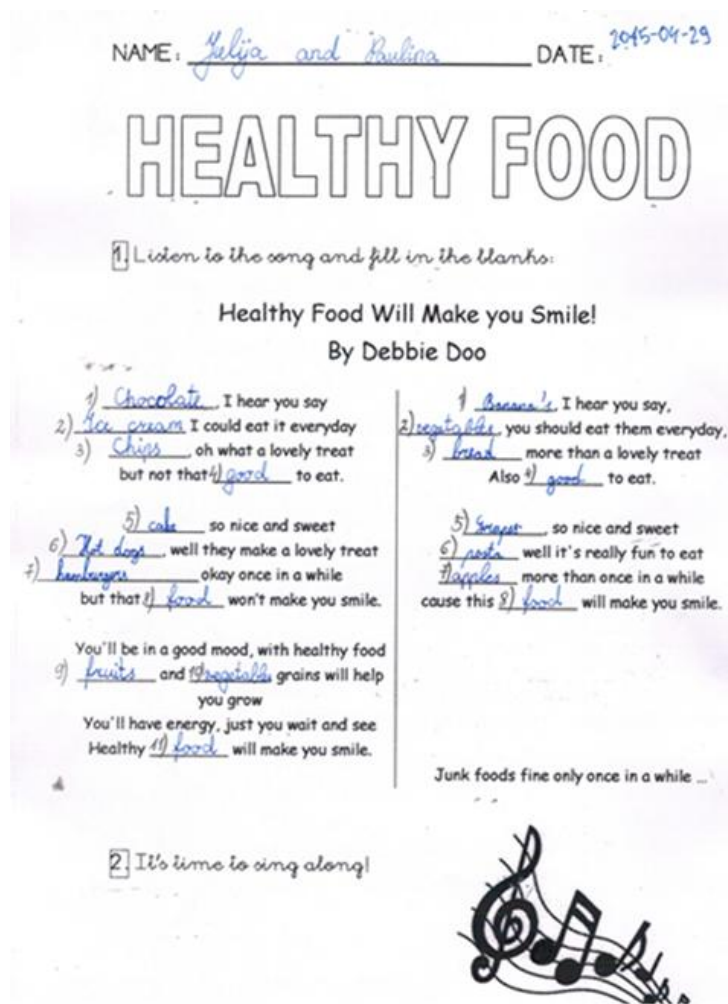 NAME: Julija and Paulina DATE: 2015-04-29
HEALTHY FOOD
1. Listen to the song and fill in the blanks:
Healthy Food Will Make you Smile!
By Debbie Doo
1) Chocolate, I hear you say
2) Ice cream I could eat it everyday
3) Chips, oh what a lovely treat
but not that 4) good to eat.
5) cake so nice and sweet
6) Hot dogs, well they make a lovely treat
7) hamburgers okay once in a while
but that 8) food won't make you smile.
You'll be in a good mood, with healthy food
9) fruits and 10) vegetables grains will help
you grow
You'll have energy, just you wait and see
Healthy 11) food will make you smile.
1) Banana's, I hear you say,
2) vegetables, you should eat them everyday,
3) bread more than a lovely treat
Also 4) good to eat.
5) Grapes, so nice and sweet
6) pasta well it's really fun to eat
7) apples more than once in a while
cause this 8) food will make you smile.
Junk foods fine only once in a while ...
2. It's time to sing along!